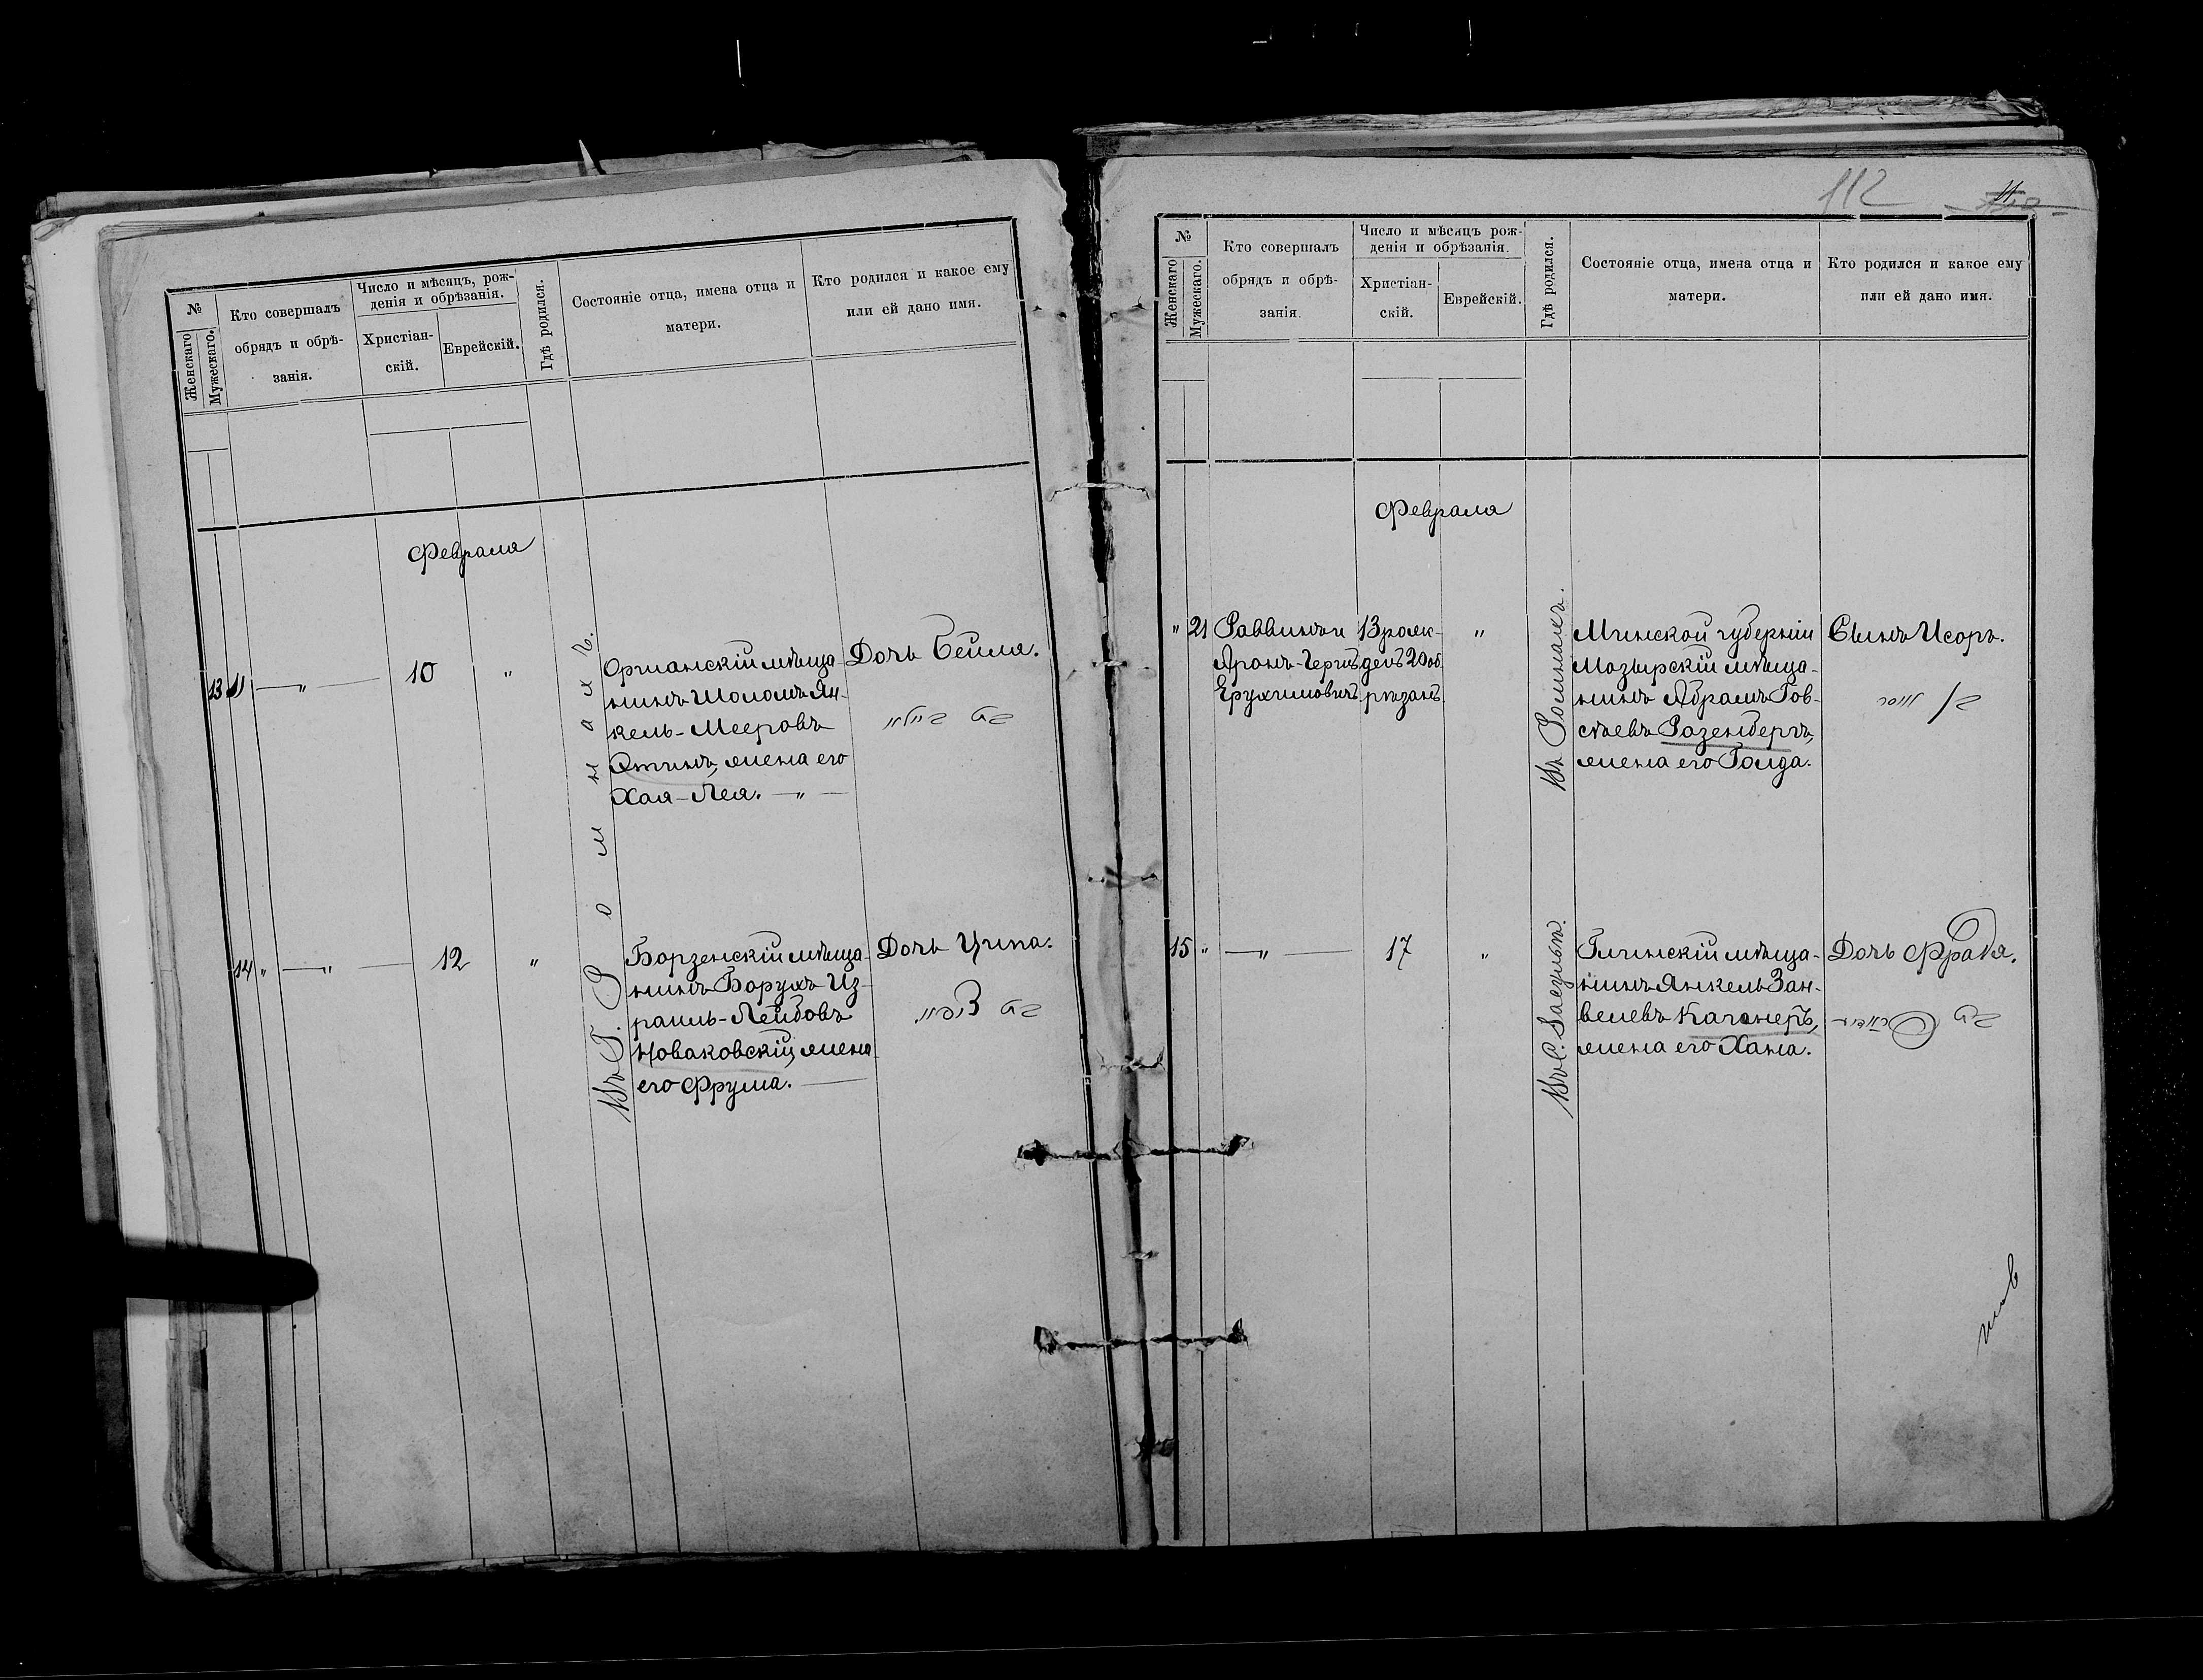 №
Женскаго
Мужескаго.
Кто совершалъ
обрядъ и обрѣ-
занія.
Число и мѣсяцъ, рож-
денія и обрѣзанія.
Христіан-
скій.
Еврейскій.
Гдѣ родился.
Состояніе отца, имена отца и
матери.
Кто родился и какое ему
или ей дано имя.
Февраля
Въ Г. Ромнахъ.
13 " — " — 10 "
Оршанскій мѣща-
нинъ Шоломъ Ян-
кель-Мееровъ
Этинъ, жена его
Хая-Лея. — " —
Дочь Бейля.
בת ביילע
14 " — " — 12 "
Борзенскій мѣща-
нинъ Борухъ Из-
раиль-Лейбовъ
Новаковскій, жена
его Фрума. —
Дочь Ципа.
בת ציפע
112
11
№
Женскаго
Мужескаго.
Кто совершалъ
обрядъ и обрѣ-
занія.
Число и мѣсяцъ рож-
денія и обрѣзанія.
Христіан-
скій.
Еврейскій.
Гдѣ родился.
Состояніе отца, имена отца и
матери.
Кто родился и какое ему
или ей дано имя.
Февраля
" 21
Раввинъ и
Аронъ-Герш
Ерухимовичъ
13 рожд-
денъ 20 об
рѣзанъ
"
Въ Ромнахъ.
Минской губерніи
Мозырскій мѣща-
нинъ Абрамъ Гов-
сѣевъ Розенбергъ,
жена его Голда.
Сынъ Исоръ.
15 " — " — 17 "
Глинскій мѣща-
нинъ Янкель Зан-
велевъ Каганеръ,
жена его Хана.
Дочь Фрадя.
בת